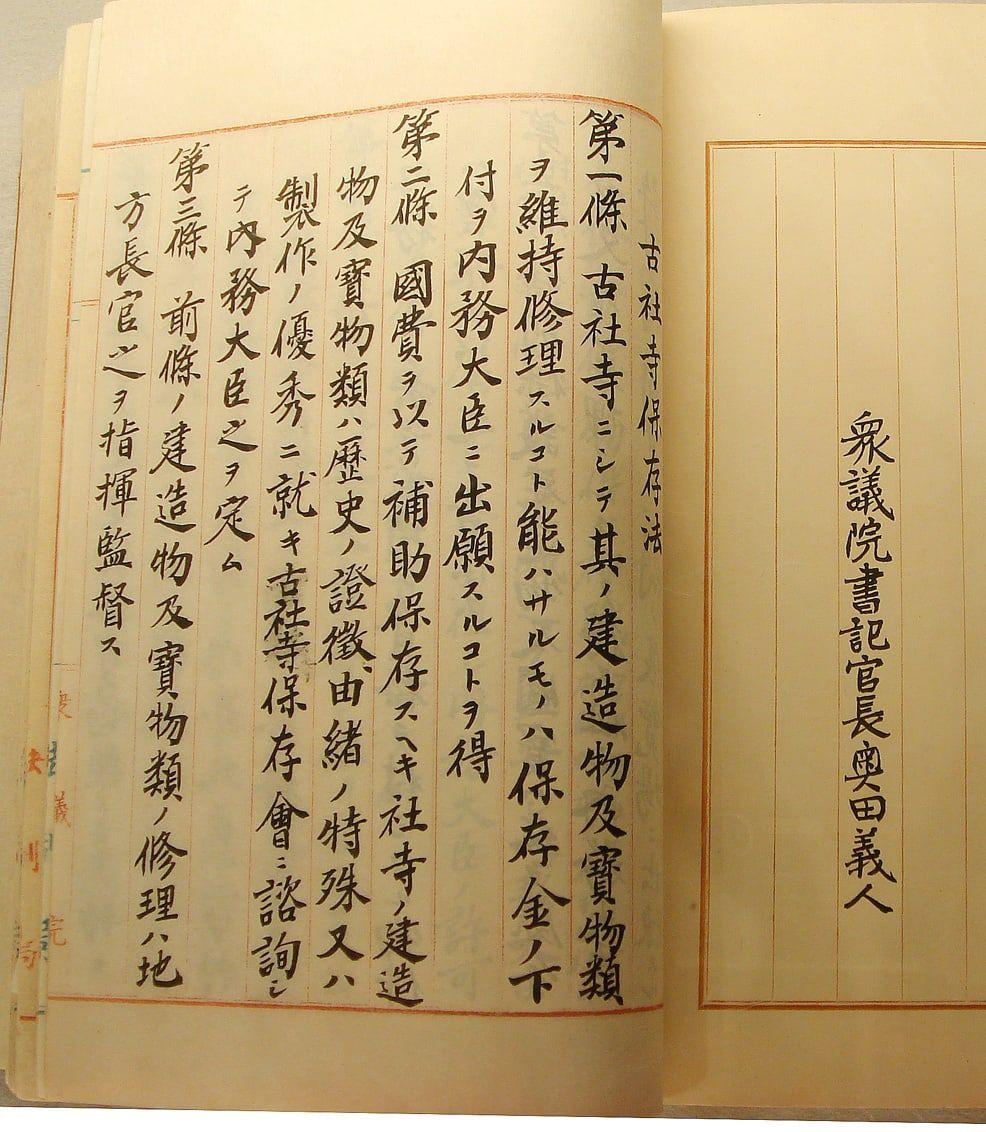 衆議院書記官長奥田義人
古社寺保存法
第一條 古社寺ニシテ其ノ建造物及寶物類
ヲ維持修理スルコト能ハサルモノハ保存金ノ下
付ヲ内務大臣ニ出願スルコトヲ得
第二條 國費ヲ以テ補助保存スヘキ社寺ノ建造
物及寶物類ハ歴史ノ證徴、由緒ノ特殊又ハ
製作ノ優秀ニ就キ古社寺保存會ニ諮詢シ
テ内務大臣之ヲ定ム
第三條 前條ノ建造物及寶物類ノ修理ハ地
方長官之ヲ指揮監督ス
衆議院